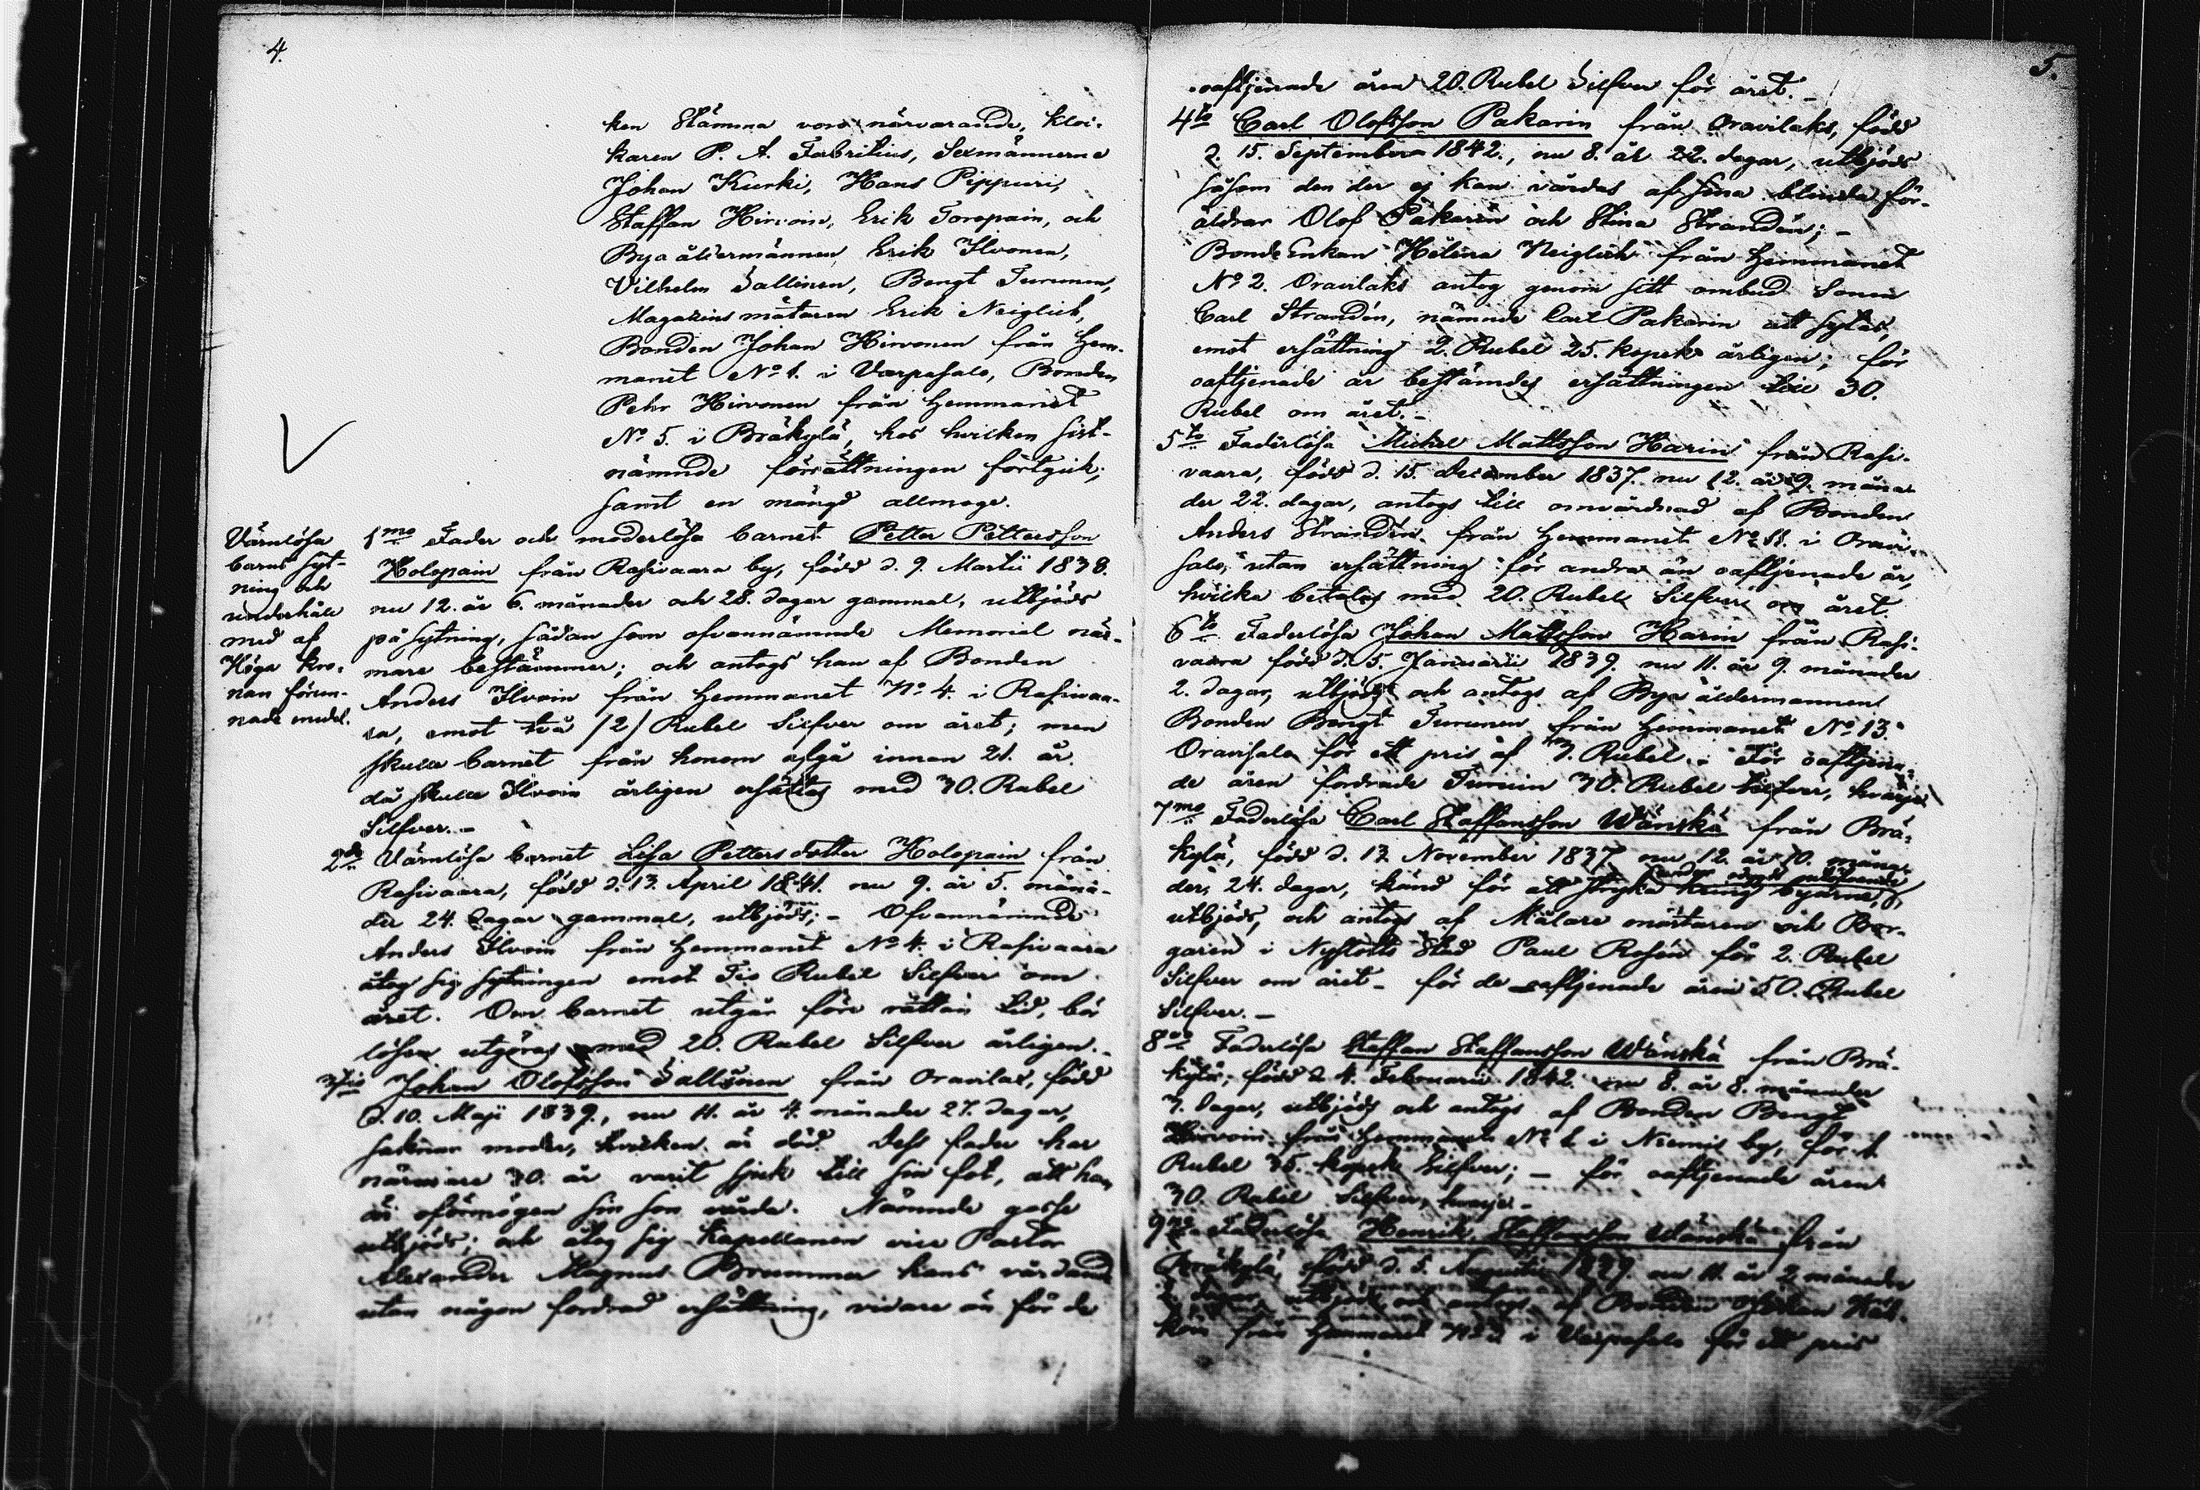 4.
ken Stämma voro närvarande, kloc-
karen P. A. Fabritius, Sexmännerne
Johan Kurki, Hans Pippuri,
Staffan Hirvoin, Erik Toropain, och
Byaåldermännen Erik Ilvonen,
Vilhelm Sallinen, Bengt Turunen,
Magazinsmätaren Erik Neiglick,
Bonden Johan Hirvonen från Hem-
manet No 1. i Varpasalo, Bonden
Pehr Hirvonen från Hemmanet
No 5. i Bräkylä, hos hvilken sist-
nämnde förrättningen förtgick;
samt en mängd allmoge.
Värnlösa
barns syt-
ning och
underhåll
med af
Höga Kro-
nan förun-
nade medel.
1mo Fader och moderlösa barnet Petter Pettersson
Holopain från Rasivaara by, född d. 9. Martii 1838.
nu 12. år 6. månader och 28. dagar gammal, utbjöds
på sytning, sådan som ofvannämnde Memorial när-
mare bestämmer; och antogs han af Bonden
Anders Ilvoin från Hemmanet No 4. i Rasivaa-
ra, emot två /2/ Rubel Silfver om året; men
skulle barnet från honom afgå innan 21. år
då skulle Ilvoin årligen ersättas med 30. Rubel
Silfver. –
2do Värnlösa barnet Lisa Pettersdotter Holopain från
Rasivaara, född d. 13. April 1841. nu 9. år 5. måna-
der 24. dagar gammal, utbjöds; – Ofvannämnde
Anders Ilvoin från Hemmanet No 4. i Rasivaara
åtog sig sytningen emot Tio Rubel Silfver om
året. Om barnet utgår före rättan tid, bör
lösen utgöras med 20. Rubel Silfver årligen. –
3tio Johan Olofsson Sallinen från Oravilax, född
d. 10. Maji 1839., nu 11. år 4. månader 27. dagar,
saknar moder, hvilken är död. Dess fader har
närmare 30. år varit sjuk till sin fot, att han
är oförmögen sin son vårda. Nämnde gosse
utbjöds; och åtog sig Kapellanen vice Pastor
Alexander Magnus Brummer hans vårdand
utan någon fordrad ersättning, vidare än för de
5.
oaftjenade åren 20. Rubel Silfver för året. –
4to Carl Olofsson Pakarin från Oravilaks, född
d. 15. September 1842., nu 8. år 22. dagar, utbjöds
såsom den der ej kan vårdas af sina blinda för-
äldrar Olof Pakarin och Stina Strandén; –
Bonde Enkan Helena Neiglick från Hemmanet
No 2. Oravilaks antog genom sitt ombud Sonen
Carl Strandén, nämnde Carl Pakarin att sytas,
emot ersättning 2. Rubel 25. kopek årligen; för
oaftjenade år bestämdes ersättningen till 30.
Rubel om året. –
5to Faderlösa Mickel Mattsson Harin från Rasi-
vaara, född d. 15. December 1837. nu 12. år 9. måna-
der 22. dagar, antogs till omvårdnad af Bonden
Anders Strandén från Hemmanet No 11. i Oravi-
salo, utan ersättning för andra än oaftjenade år,
hvilka betalas med 20. Rubel Silfver om året.
6to Faderlösa Johan Mattsson Harin från Rasi-
vaara född d. 5. Januarii 1839. nu 11. år 9. månader
2. dagar, utbjöds och antogs af Bya åldermannen
Bonden Bengt Turunen från Hemmanet No 13.
Oravisalo för ett pris af 3. Rubel. För oaftjena-
de åren fordrade Turuin 30. Rubel Silfver, hvarje
7mo Faderlösa Carl Staffansson Wänskä från Brä-
kylä, född d. 13. November 1837 nu 12. år 10. måna-
der, 24. dagar, känd för att stryka kring byarne,
utbjöds, och antogs af Målare mästaren och Bor-
garen i Nyslotts Stad Paul Rosén för 2. Rubel
Silfver om året – för de oaftjenade åren 50. Rubel
Silfver. –
8vo Faderlösa Staffan Staffansson Wänskä från Brä-
kylä, född d. 4. Februarii 1842. nu 8. år 8. månader
3. dagar, utbjöds och antogs af Bonden Bengt
Hirvoin från Hemmanet No 1 i Niemis by, för 1.
Rubel 75. kopek Silfver; – för oaftjenade åren
30. Rubel Silfver, hvarje –
9no Faderlösa Henrik Staffansson Wänskä från
Bräkylä, född d. 5. Augustii 1839. nu 11. år 2 månader
2. dagar, utbjöds och antogs af Bonden Johan
från Hemmanet No 3 i Varpasalo för ett pris